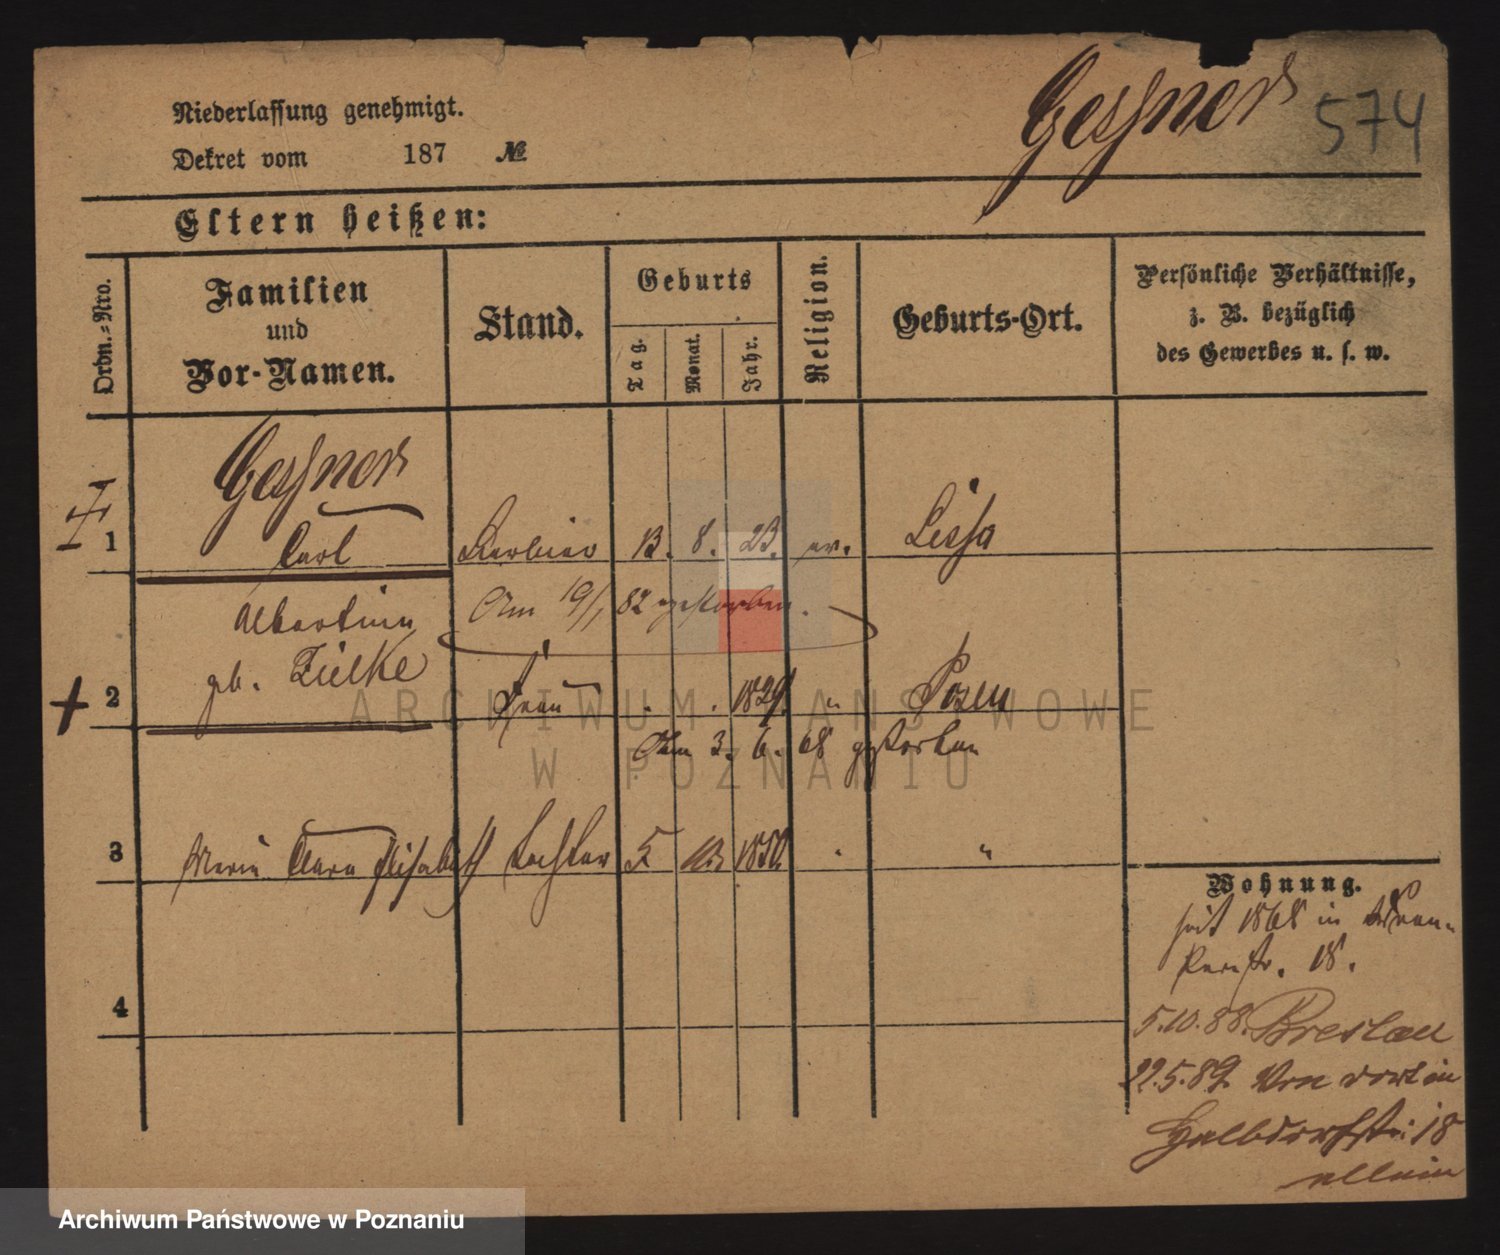 Niederlassung genehmigt.
Dekret vom 187 №
Geßner 574
Eltern heißen:
Ordn.=Nro.
Familien
und
Vor-Namen.
Stand.
Geburts
Tag.
Monat.
Jahr.
Religion.
Geburts-Ort.
Persönliche Verhältnisse,
z. B. bezüglich
des Gewerbes u. s. w.
Geßner
1 Carl Barbier 13. 8. 23. ev. Lissa
Am 19/1 82 gestorben.
Albertine
2 gb. Zielke Frau . . 1829. " Posen
Am 3. 6. 68 gestorben
3 Marie Clara Elisabeth Tochter 5 1850. " "
4
Wohnung.
seit 1868 in
18.
5.10.88. Breslau
22.5.89. Von dort in
Halbdorfstr. 18
allein
ARCHIWUM PAŃSTWOWE
W POZNANIU
Archiwum Państwowe w Poznaniu